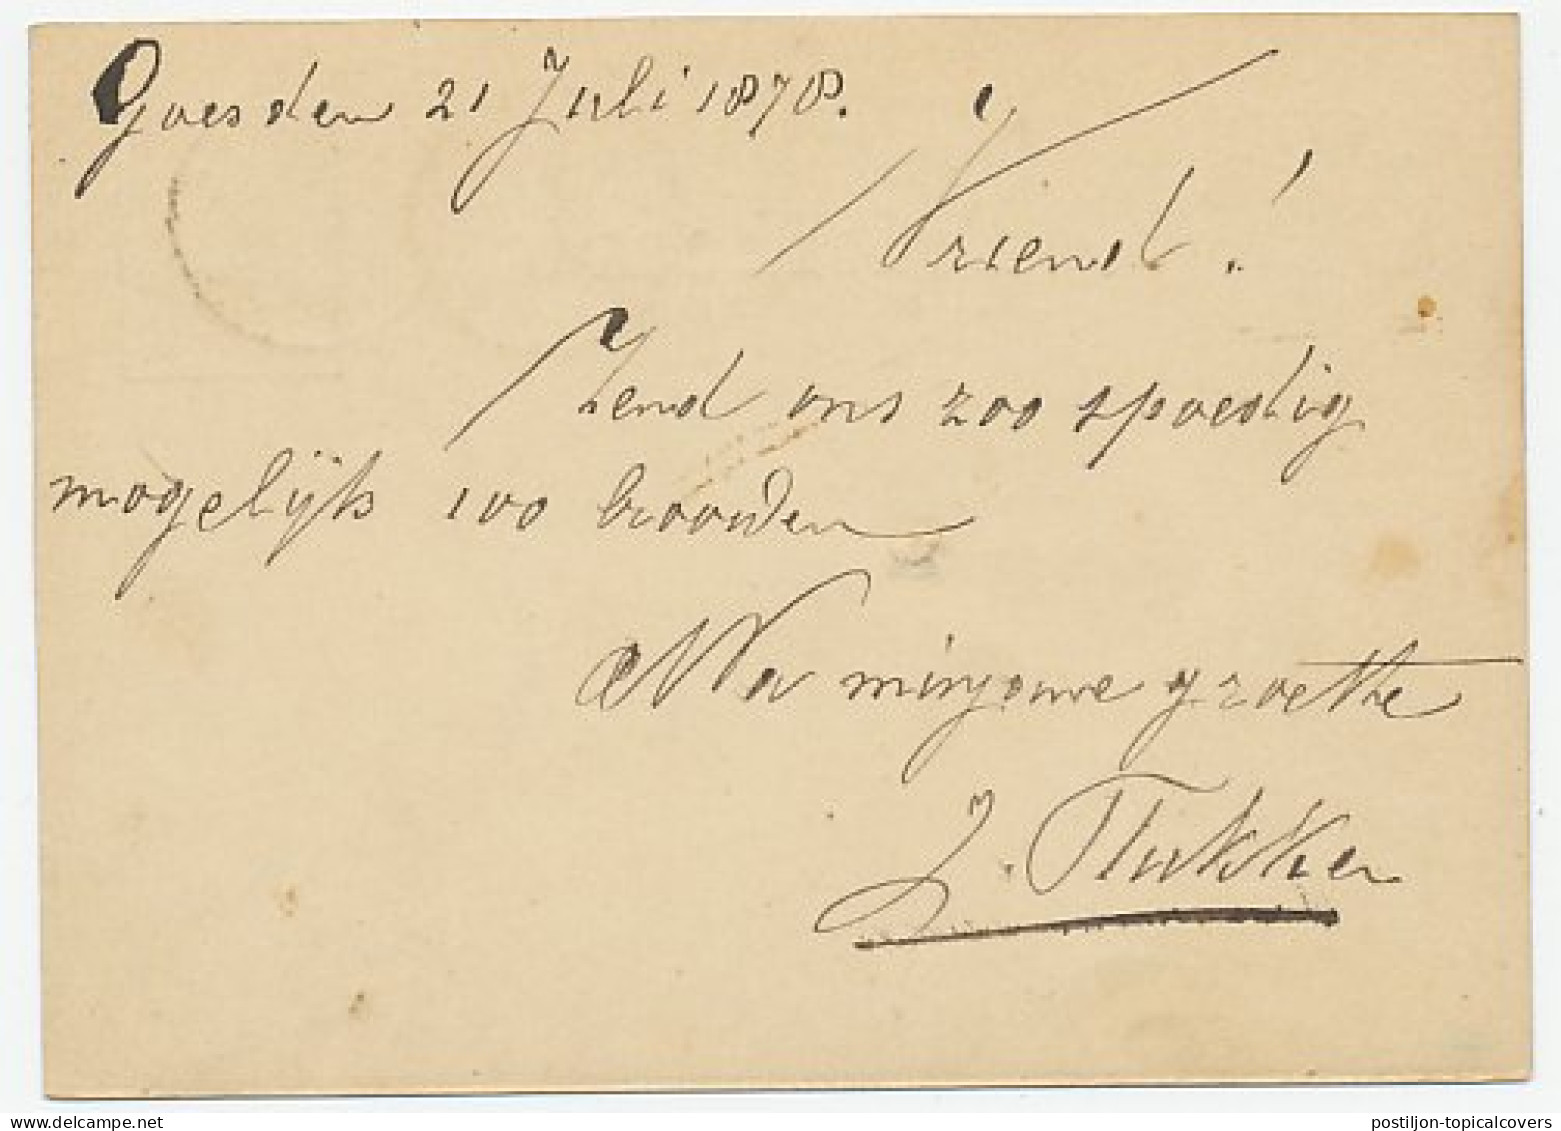 Goes den 21 Juli 1878.
Vriend!
Zend ons zoo spoedig
mogelijk 100 boorden
Na minzame groette
J. Flukker
www.delcampe.net
postiljon-topicalcovers